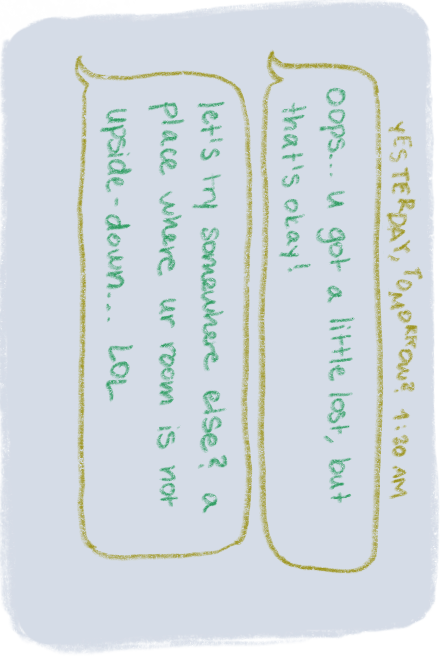 YESTERDAY, TOMORROW? 1:20 AM
oops... u got a little lost, but
that's okay!
let's try somewhere else? a
place where ur room is not
upside-down... LOL